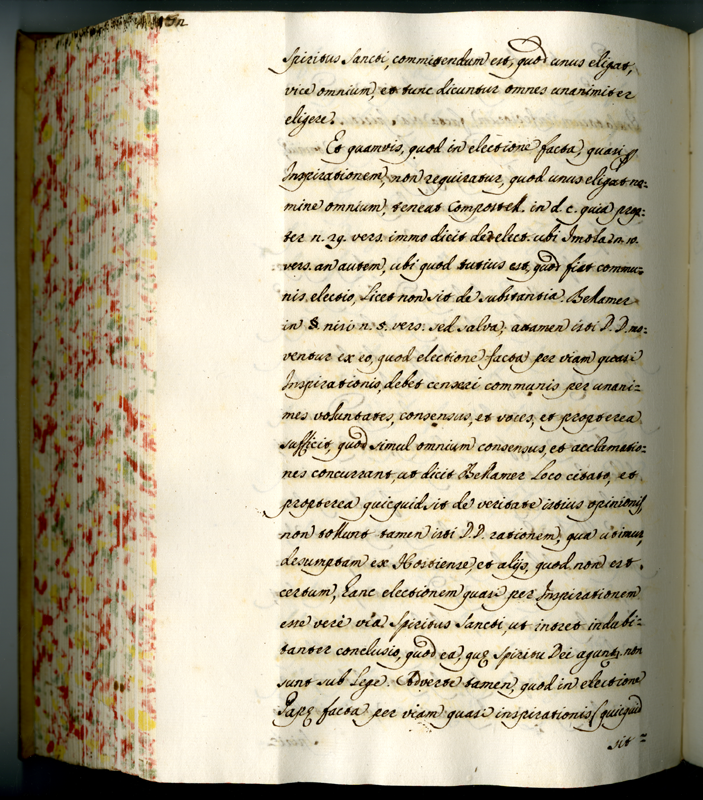 Spiritus Sancti, commitendum est, quod unus eligat,
vice omnium, et tunc dicuntur omnes unanimiter
eligere.
Et quamvis, quod in electione facta, quasi p
Inspirationem, non requiratur, quod unus eligat no=
mine omnium, teneat Compostell. in d. c. quia prop=
ter n. 29. vers. immo dicit de elect. ubi Imola n. 10.
vers. an autem, ubi quod tutius est, quod fiat commu=
nis electio, Licet non sit de substantia Bellamer
in § nisi n. 5. vers. sed salva; attamen isti D. D. mo=
ventur ex eo, quod electione facta per viam quasi
Inspirationis, debet censeri communis per unani=
mes voluntates, consensus, et voces, et propterea
sufficit, quod simul omnium consensus, et acclamatio=
nes concurrant, ut dicit Bellamer Loco citato, et
propterea quicquid sit de veritate istius opinionis,
non tollunt tamen isti D. D. rationem, qua utimur,
desumptam ex Hostiense, et alijs, quod non est
certum, hanc electionem quasi per Inspirationem
esse verè via Spiritus Sancti, ut intret indubi=
tanter conclusio, quod ea, quę Spiritu Dei agunt, non
sunt sub Lege. Adverte tamen, quod in electione
Papę facta per viam quasi inspirationis (quicquid
sit =